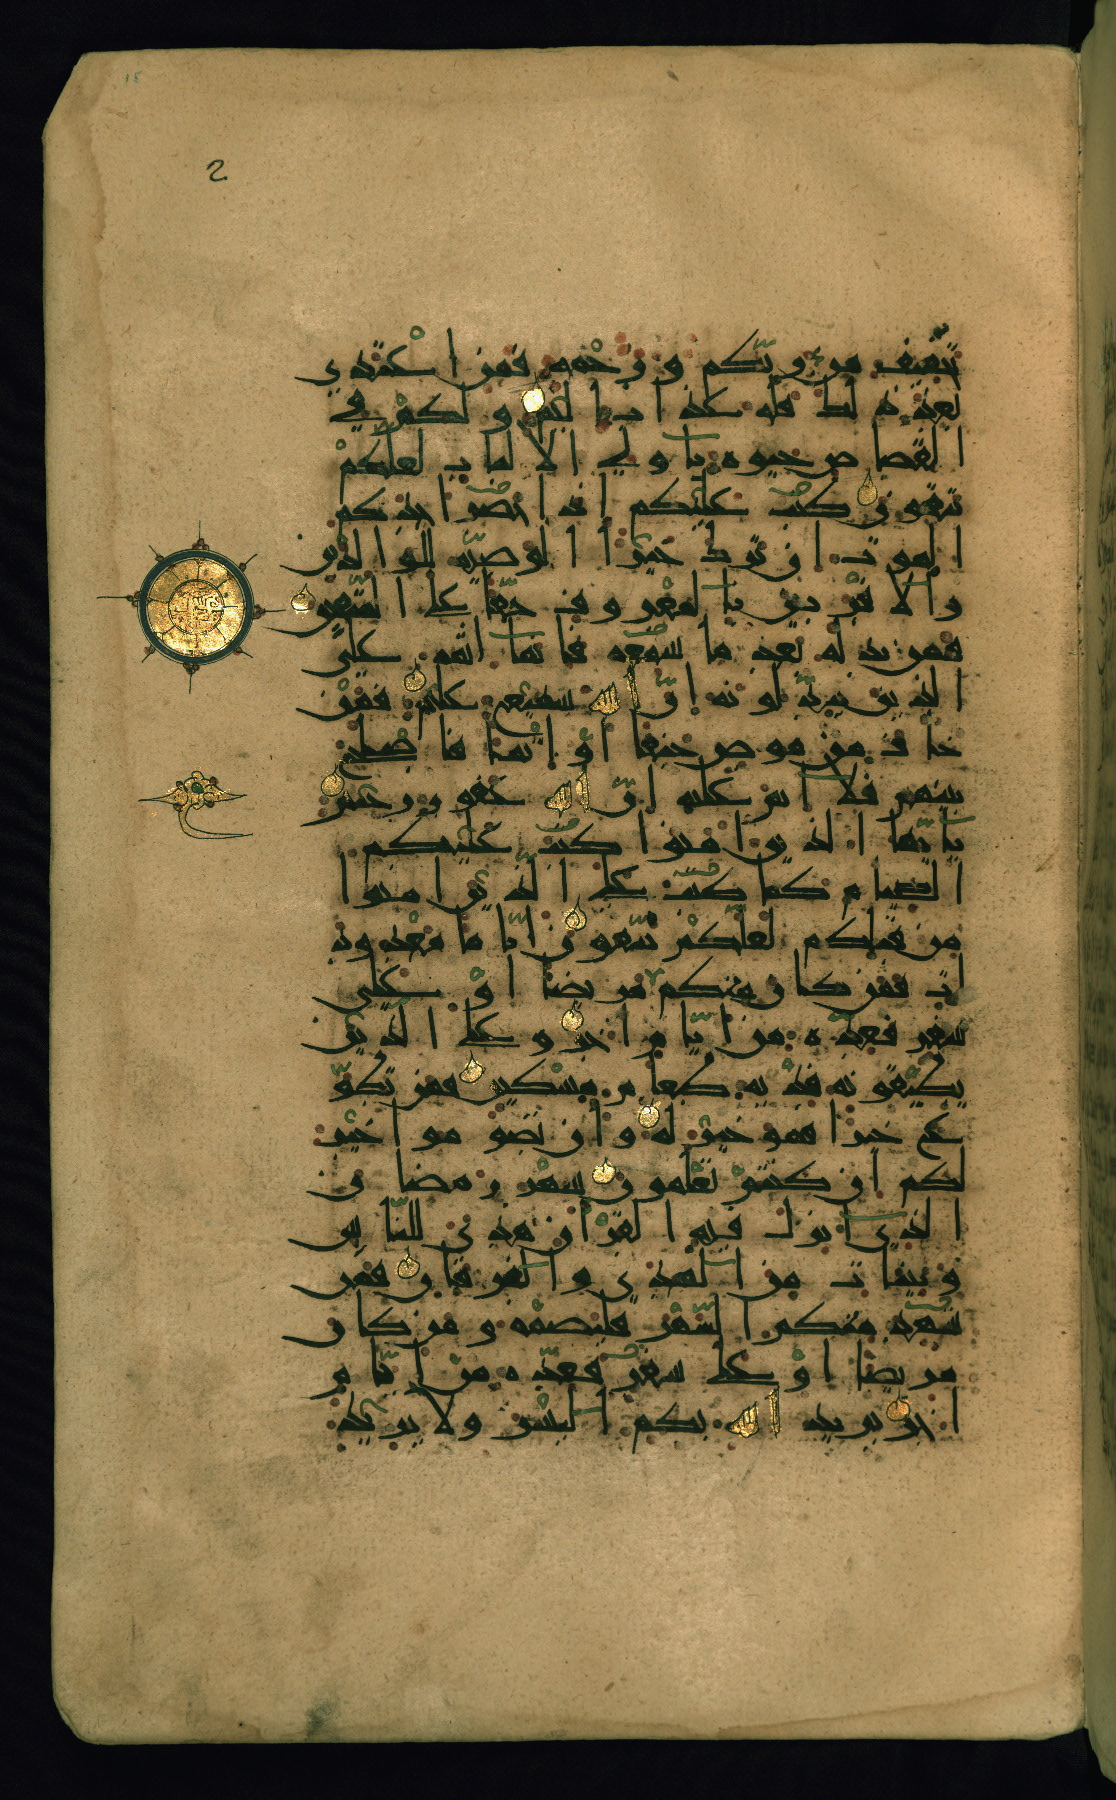 2
تخفيف من ربكم ورحمة فمن اعتدى
بعد ذلك فله عذاب اليم ولكم في
القصاص حيوة ياولي الالباب لعلكم
تتقون كتب عليكم اذا حضر احدكم
الموت ان ترك خيرا الوصية للوالدين
والاقربين بالمعروف حقا على المتقين
فمن بدله بعد ما سمعه فانما اثمه على
الذين يبدلونه ان الله سميع عليم فمن
خاف من موص جنفا او اثما فاصلح
بينهم فلا اثم عليه ان الله غفور رحيم
يايها الذين امنوا كتب عليكم
الصيام كما كتب على الذين امنوا
من قبلكم لعلكم تتقون اياما معدود
ات فمن كان منكم مريضا او على
سفر فعدة من ايام اخر وعلى الذين
يطيقونه فدية طعام مسكين فمن تطو
ع خيرا فهو خير له وان تصوموا خير
لكم ان كنتم تعلمون شهر رمضان
الذي انزل فيه القران هدى للناس
وبينات من الهدى والفرقان فمن
شهد منكم الشهر فليصمه ومن كان
مريضا او على سفر فعدة من ايام
اخر يريد الله بكم اليسر ولا يريد